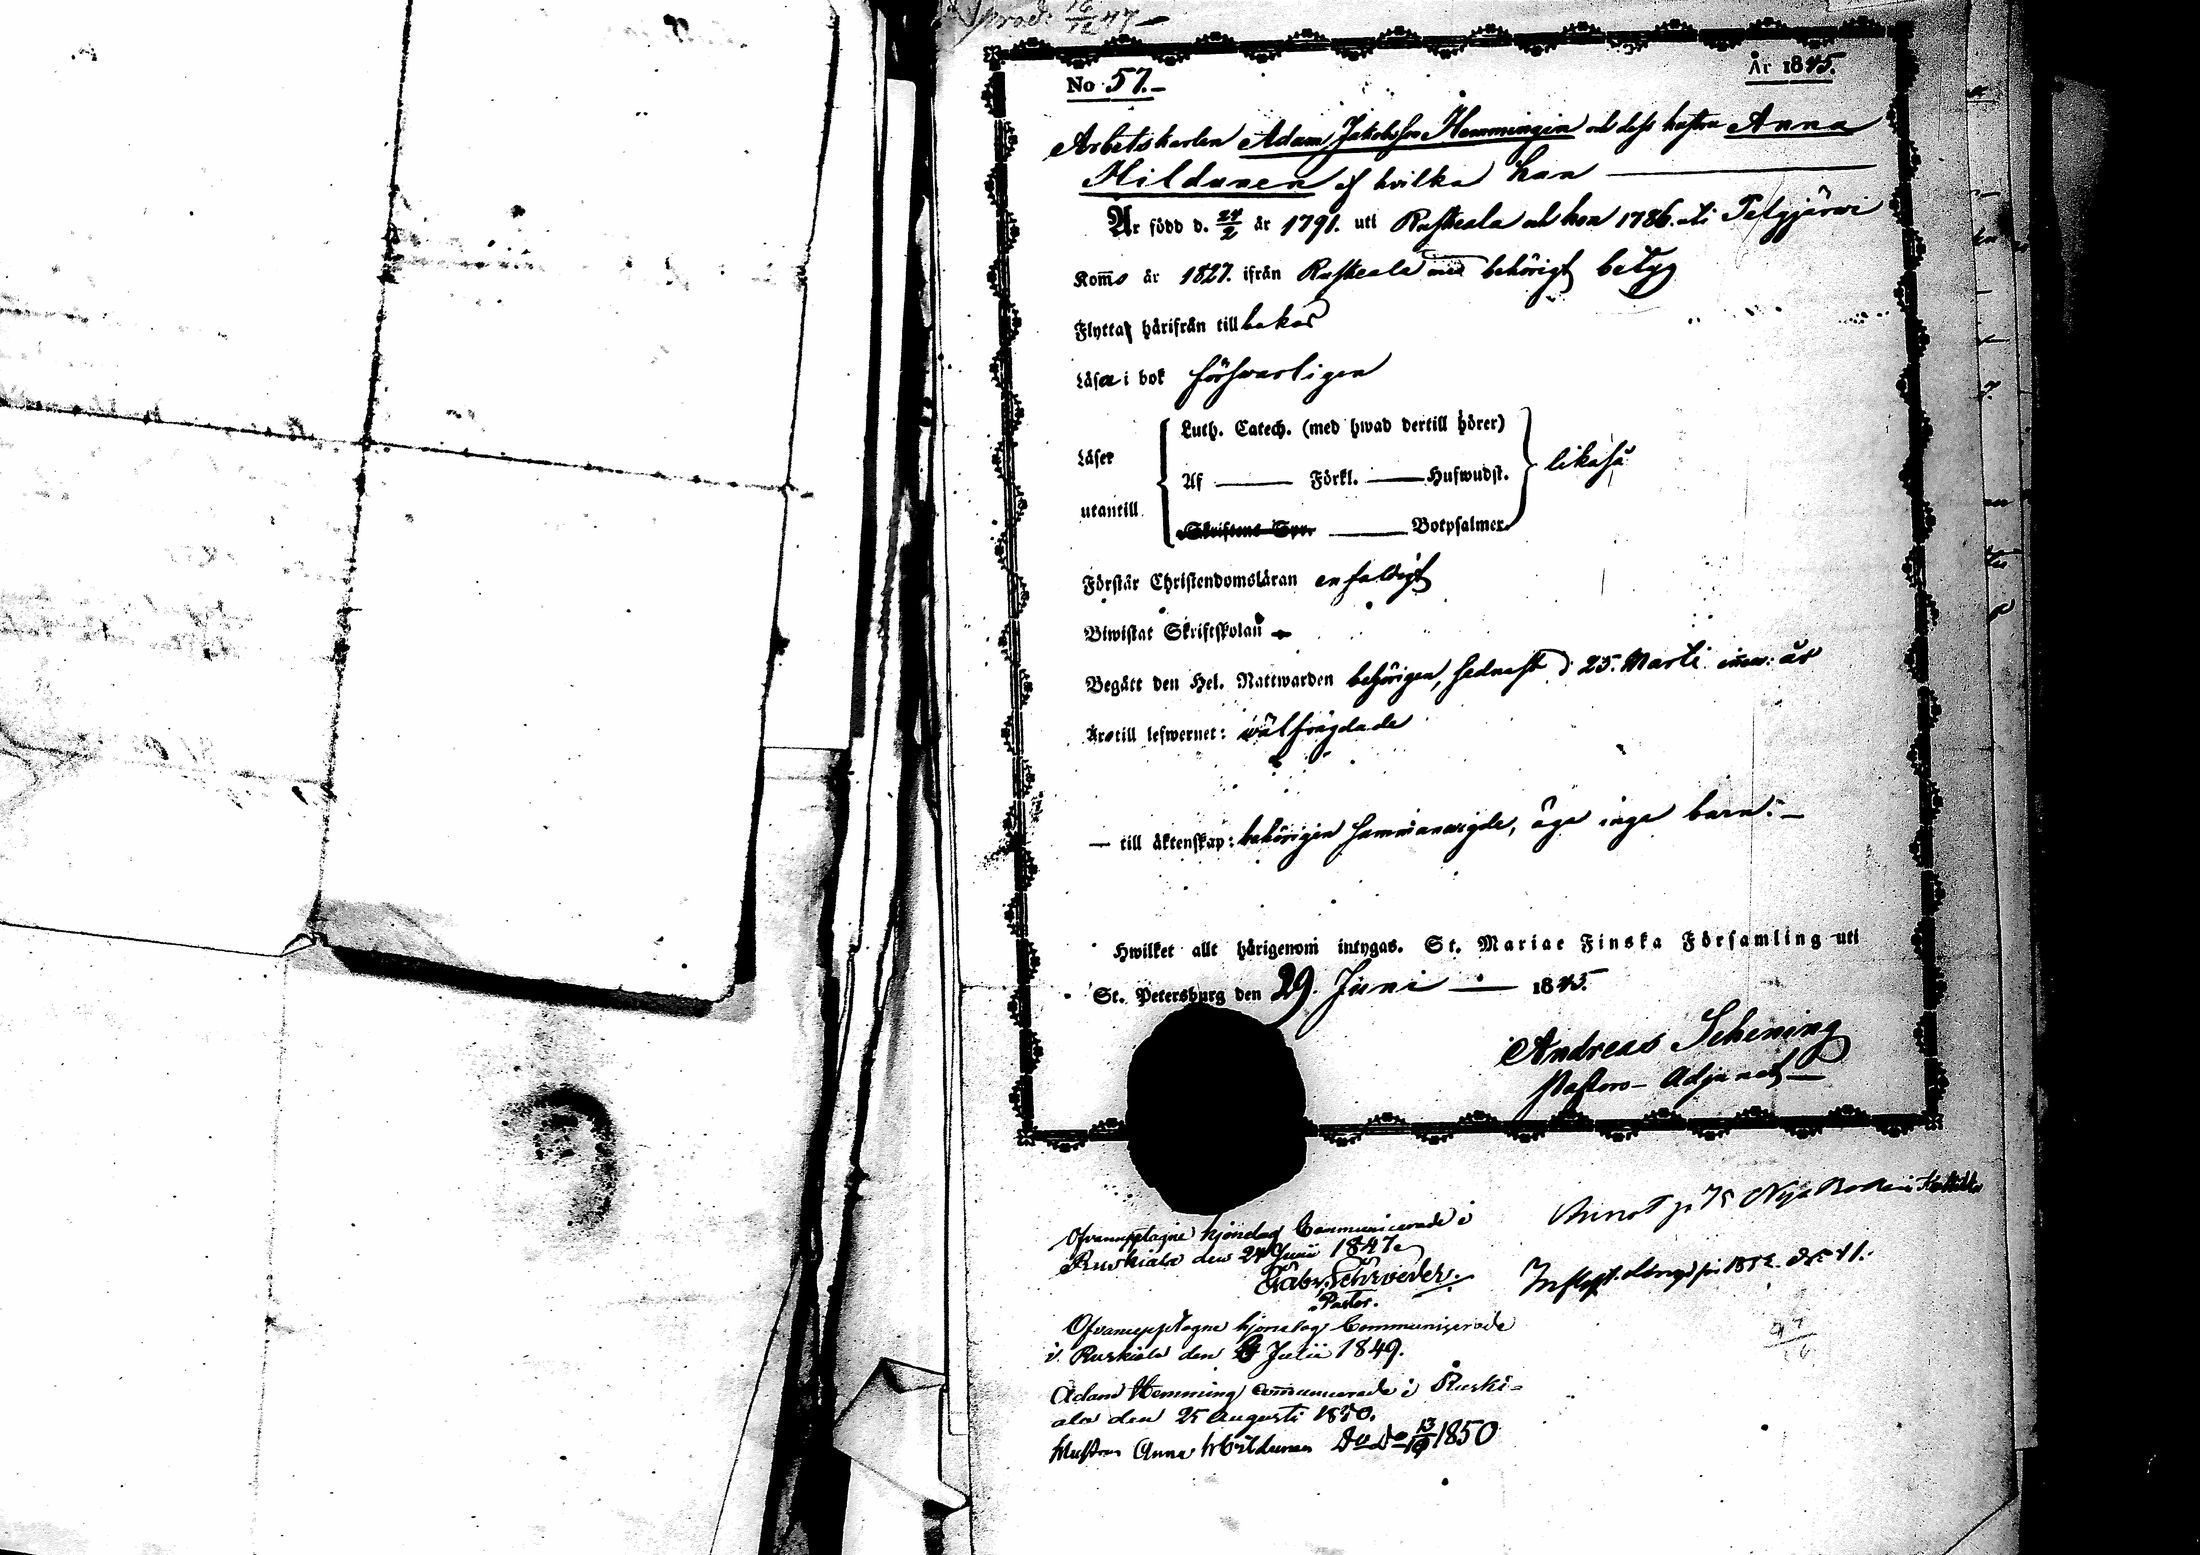 No 57.
År 1845.
Arbetskarlen Adam Jakobsson Hemmingin och dess hustru Anna
Hildunen af hvilka han
Är född d. 24/2 år 1791. uti Ruskeala och hon 1786. uti Pelgjärwi
Koms år 1827. ifrån Ruskeala med behörigt betyg
Flytta härifrån till bakas
Läsa i bok försvarligen
Läser
utantill
Luth. Catech. (med hwad dertill hörer)
Af — Förkl. — Hufwudst.
Skriftens Spr. — Botpsalmer
likaså
Förstår Christendomsläran enfaldigt
Biwistat Skriftskolan
Begått den Hel. Nattwarden behörigen, sednast d 25. Marti innev: år
Äro till lefwernet: wälfrägdade
— till äktenskap: behörigen sammanwigde, äga inga barn. —
Hwilket allt härigenom intygas. St. Mariae Finska Församling uti
St. Petersburg den 29. Juni — 1845.
Andreas Schening
Pastors-Adjunct
Ofvanupptagne hjonelag Communicerade i
Ruskiala den 24 Junii 1847.
Gabr. Schroeder.
Pastor.
Ofvanupptagne hjonelag Communicerade
i Ruskiala den Julii 1849.
Adam Hemming communicerade i Ruski-
ala den 25 Augusti 1850.
Hustrun Anna Hildunen Do Do 13/10 1850